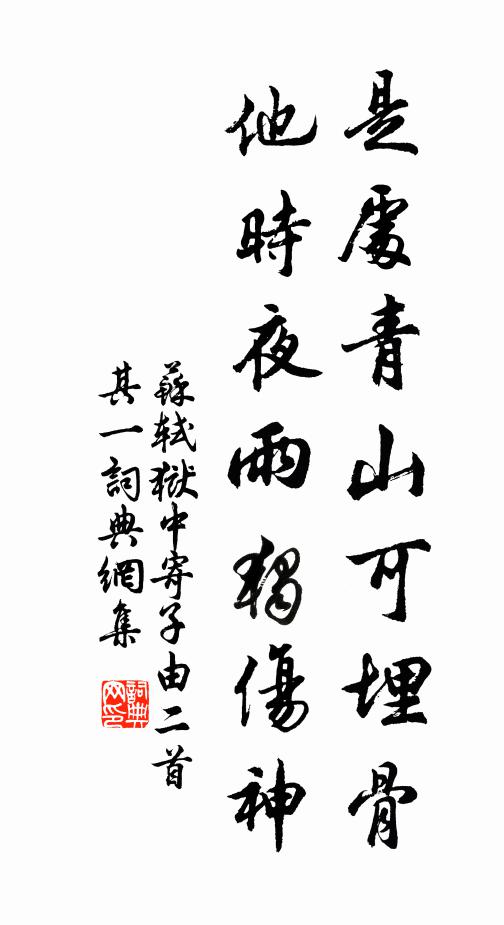 是處青山可埋骨
他時夜雨獨傷神
蘇軾獄中寄子由二首
其一詞典網集
詞典
网印